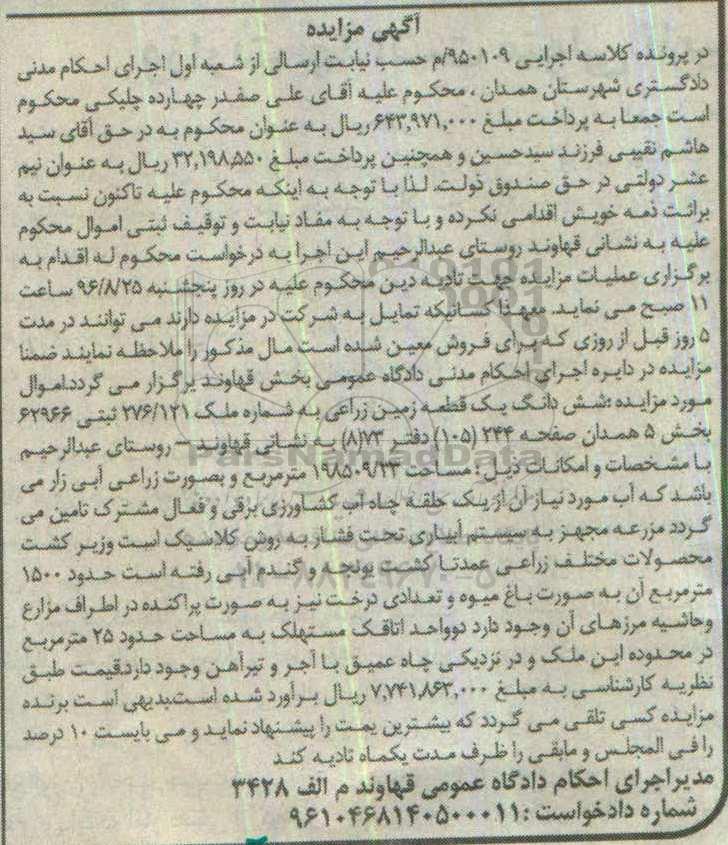 آگهی مزایده
در پرونده کلاسه اجرایی ۹۵۰۱۰۹/م حسب نیابت ارسالی از شعبه اول اجرای احکام مدنی
دادگستری شهرستان همدان ، محکوم علیه آقای علی صفدر چهارده چلیکی محکوم
است جمعا به پرداخت مبلغ ۶۴۳,۹۷۱,۰۰۰ ریال به عنوان محکوم به در حق آقای سید
هاشم نقیبی فرزند سیدحسین و همچنین پرداخت مبلغ ۳۲,۱۹۸,۵۵۰ ریال به عنوان نیم
عشر دولتی در حق صندوق دولت. لذا با توجه به اینکه محکوم علیه تاکنون نسبت به
برائت ذمه خویش اقدامی نکرده و با توجه به مفاد نیابت و توقیف ثبتی اموال محکوم
علیه به نشانی قهاوند روستای عبدالرحیم این اجرا به درخواست محکوم له اقدام به
برگزاری عملیات مزایده جهت تادیه دین محکوم علیه در روز پنجشنبه ۹۶/۸/۲۵ ساعت
۱۱ صبح می نماید. معهذا کسانیکه تمایل به شرکت در مزایده دارند می توانند در مدت
۵ روز قبل از روزی که برای فروش معین شده است مال مذکور را ملاحظه نمایند ضمنا
مزایده در دایره اجرای احکام مدنی دادگاه عمومی بخش قهاوند برگزار می گردد.اموال
مورد مزایده :شش دانگ یک قطعه زمین زراعی به شماره ملک ۲۷۶/۱۲۱ ثبتی ۶۲۹۶۶
بخش ۵ همدان صفحه ۲۴۴ (۱۰۵) دفتر ۷۳(۸) به نشانی قهاوند – روستای عبدالرحیم
با مشخصات و امکانات ذیل : مساحت ۱۹۸۵۰۹/۲۳ مترمربع و بصورت زراعی آبی زار می
باشد که آب مورد نیاز آن از یک حلقه چاه آب کشاورزی برقی و فعال مشترک تامین می
گردد مزرعه مجهز به سیستم آبیاری تحت فشار به روش کلاسیک است وزیر کشت
محصولات مختلف زراعی عمدتا کشت یونجه و گندم آبی رفته است حدود ۱۵۰۰
مترمربع آن به صورت باغ میوه و تعدادی درخت نیز به صورت پراکنده در اطراف مزارع
وحاشیه مرزهای آن وجود دارد دوواحد اتاقک مستهلک به مساحت حدود ۲۵ مترمربع
در محدوده این ملک و در نزدیکی چاه عمیق با آجر و تیرآهن وجود دارد.قیمت طبق
نظریه کارشناسی به مبلغ ۷,۷۴۱,۸۶۳,۰۰۰ ریال برآورد شده است.بدیهی است برنده
مزایده کسی تلقی می گردد که بیشترین یمت را پیشنهاد نماید و می بایست ۱۰ درصد
را فی المجلس و مابقی را ظرف مدت یکماه تادیه کند
مدیراجرای احکام دادگاه عمومی قهاوند م الف ۳۴۲۸
شماره دادخواست :۹۶۱۰۴۶۸۱۴۰۵۰۰۰۱۱
ParsNamadData